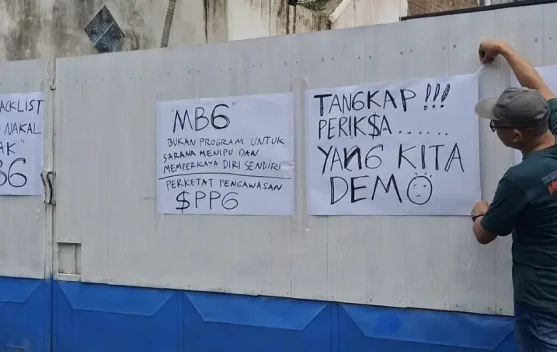 ACKLIST
NAKAL
AK"
"MBG"
BUKAN PROGRAM UNTUK
SARANA MENIPU DAN
MEMPERKAYA DIRI SENDIRI
PERKETAT PENGAWASAN
$PPG
TANGKAP !!!
PERIK$A......
YANG KITA
DEMO